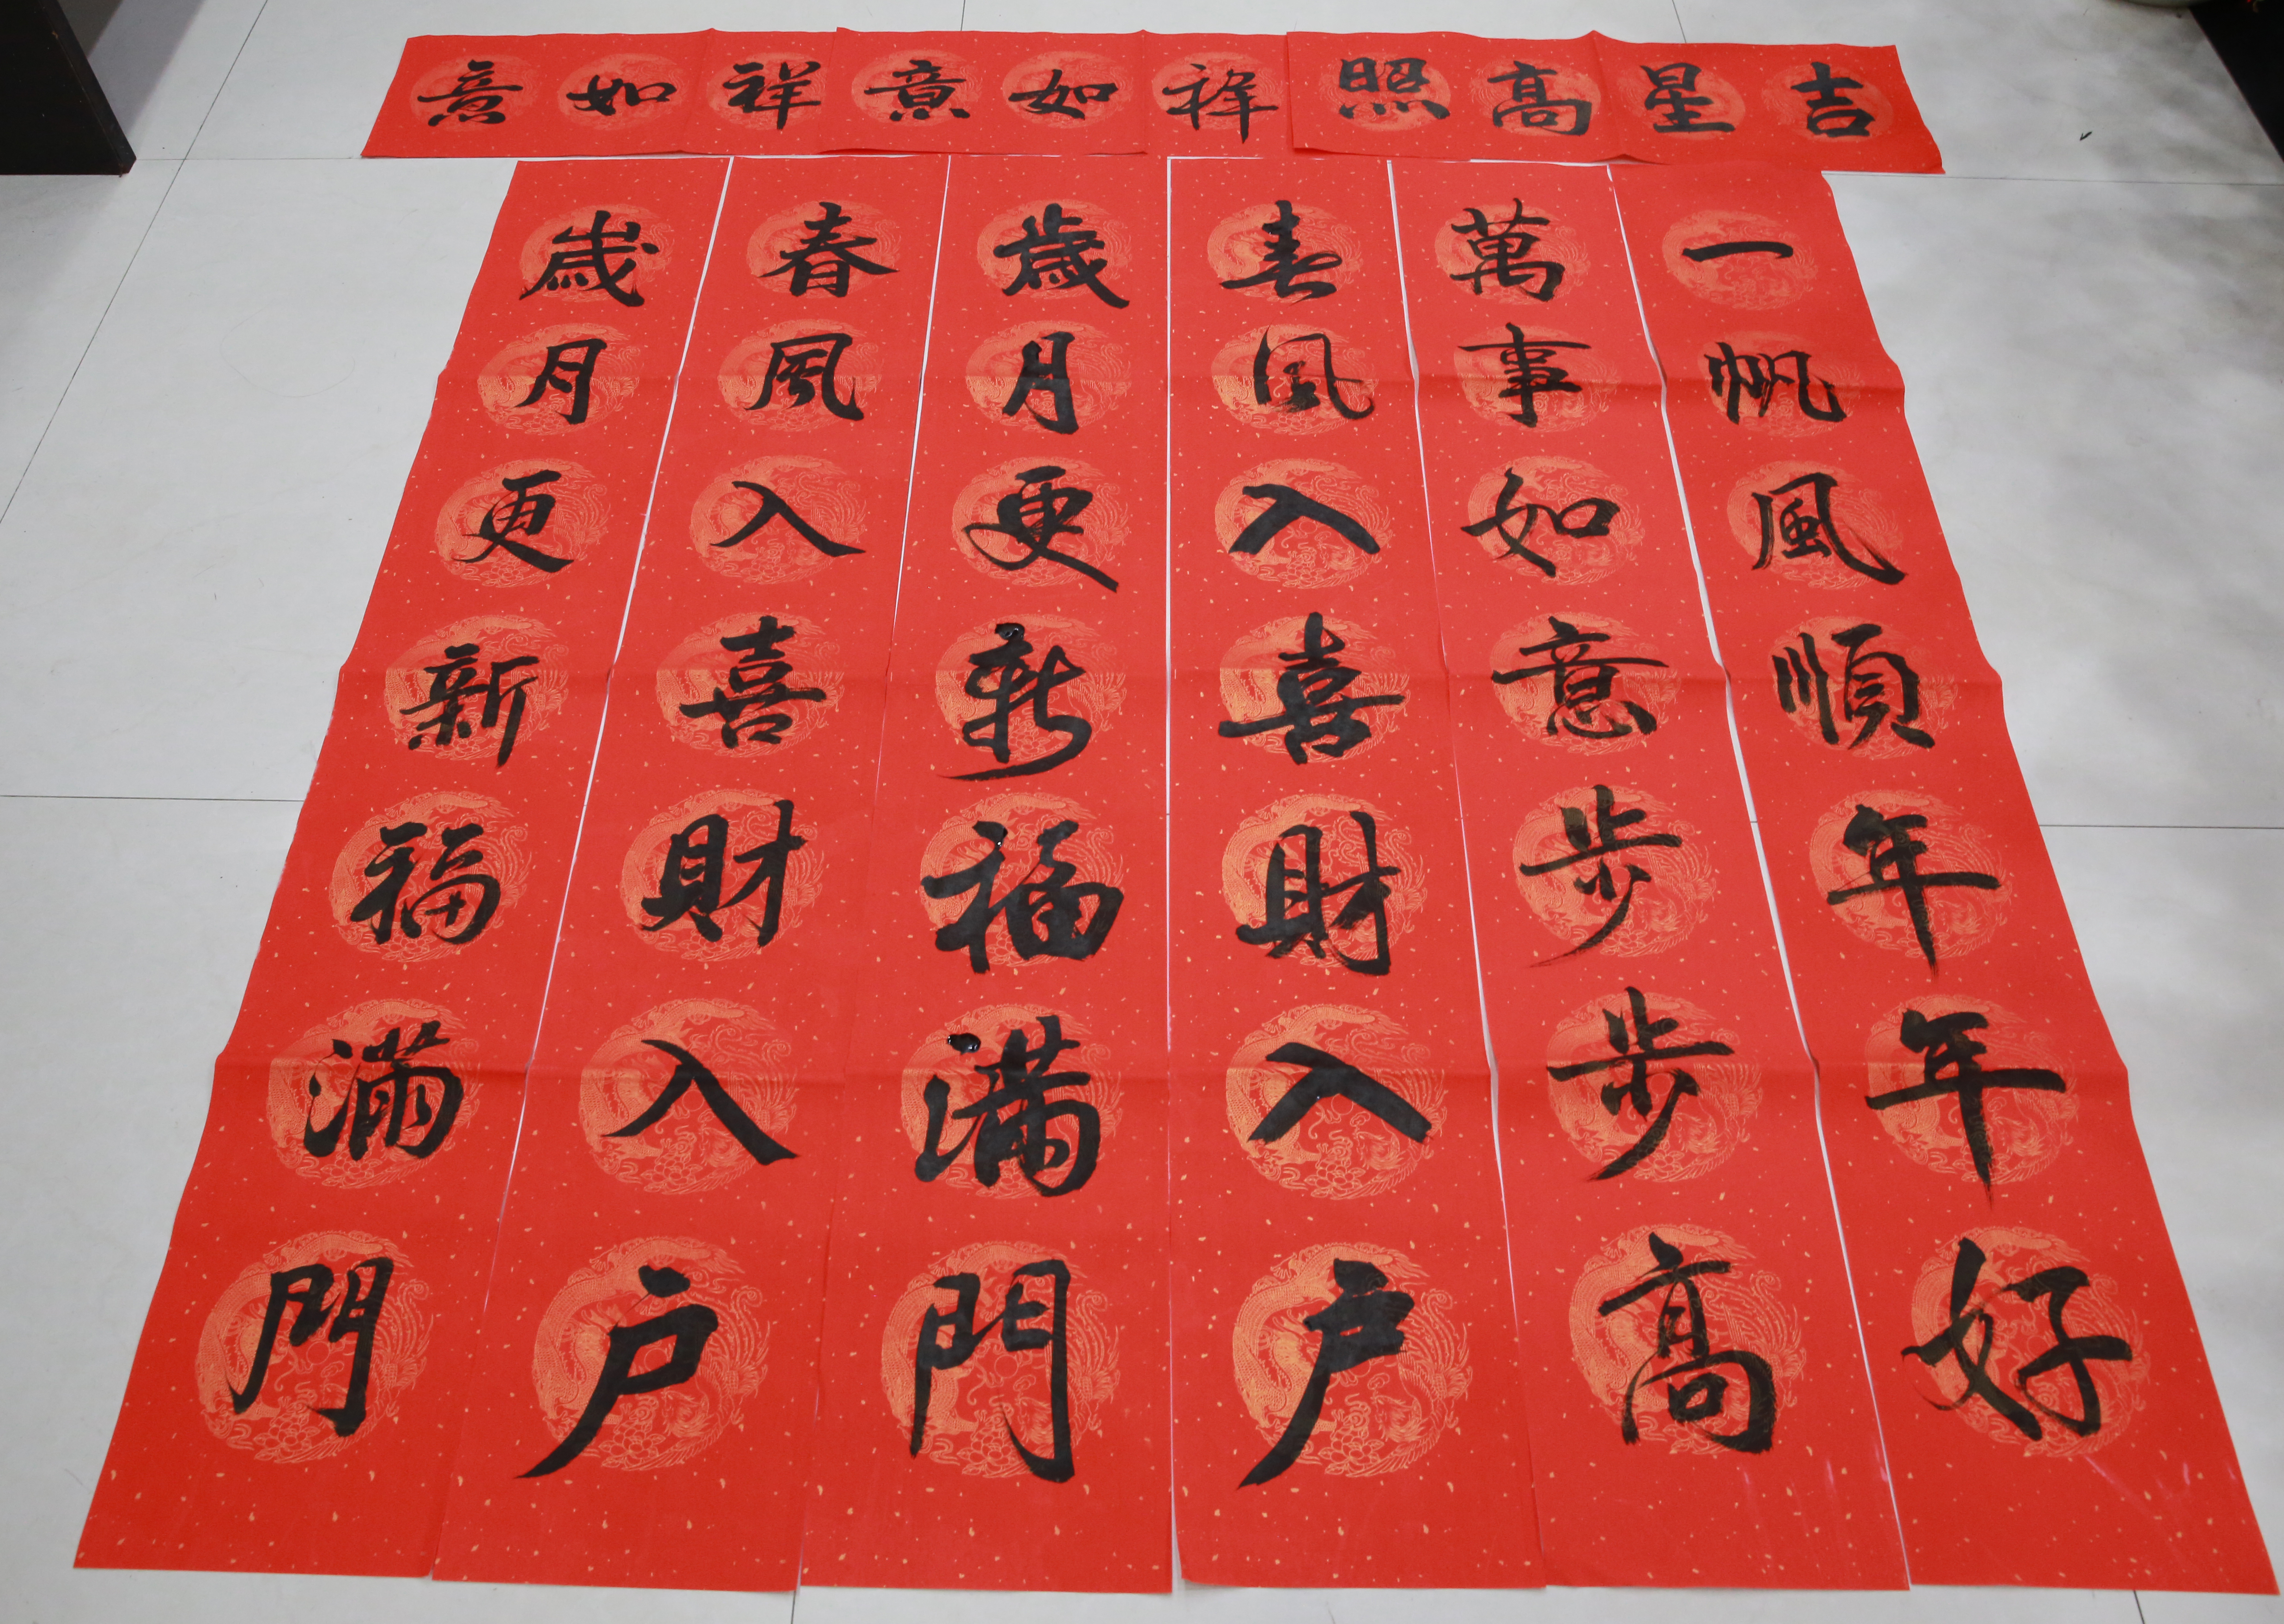 吉星高照
祥如意
祥如意
一帆風順年年好
萬事如意步步高
春風入喜財入户
歲月更新福滿門
春風入喜財入户
歲月更新福滿門